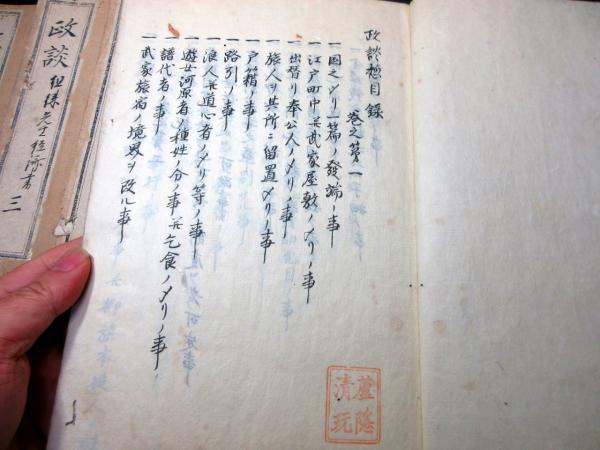 政談惣目録
巻之第一
一国之〆リ一篇ノ發端ノ事
一江戸町中并武家屋敷ノ〆リノ事
一出替リ奉公人ノ〆リノ事
一旅人ヲ其所ニ留置〆リノ事
一戸籍ノ事
一路引ノ事
一浪人并道心者ノ〆リ等ノ事
一遊女河原者ノ種姓ノ分ノ事并乞食ノ〆リノ事
一譜代者ノ事
一武家旅宿ノ境界ヲ改ル事
蘆隠
清玩
政談
徂徠先生経済書
三